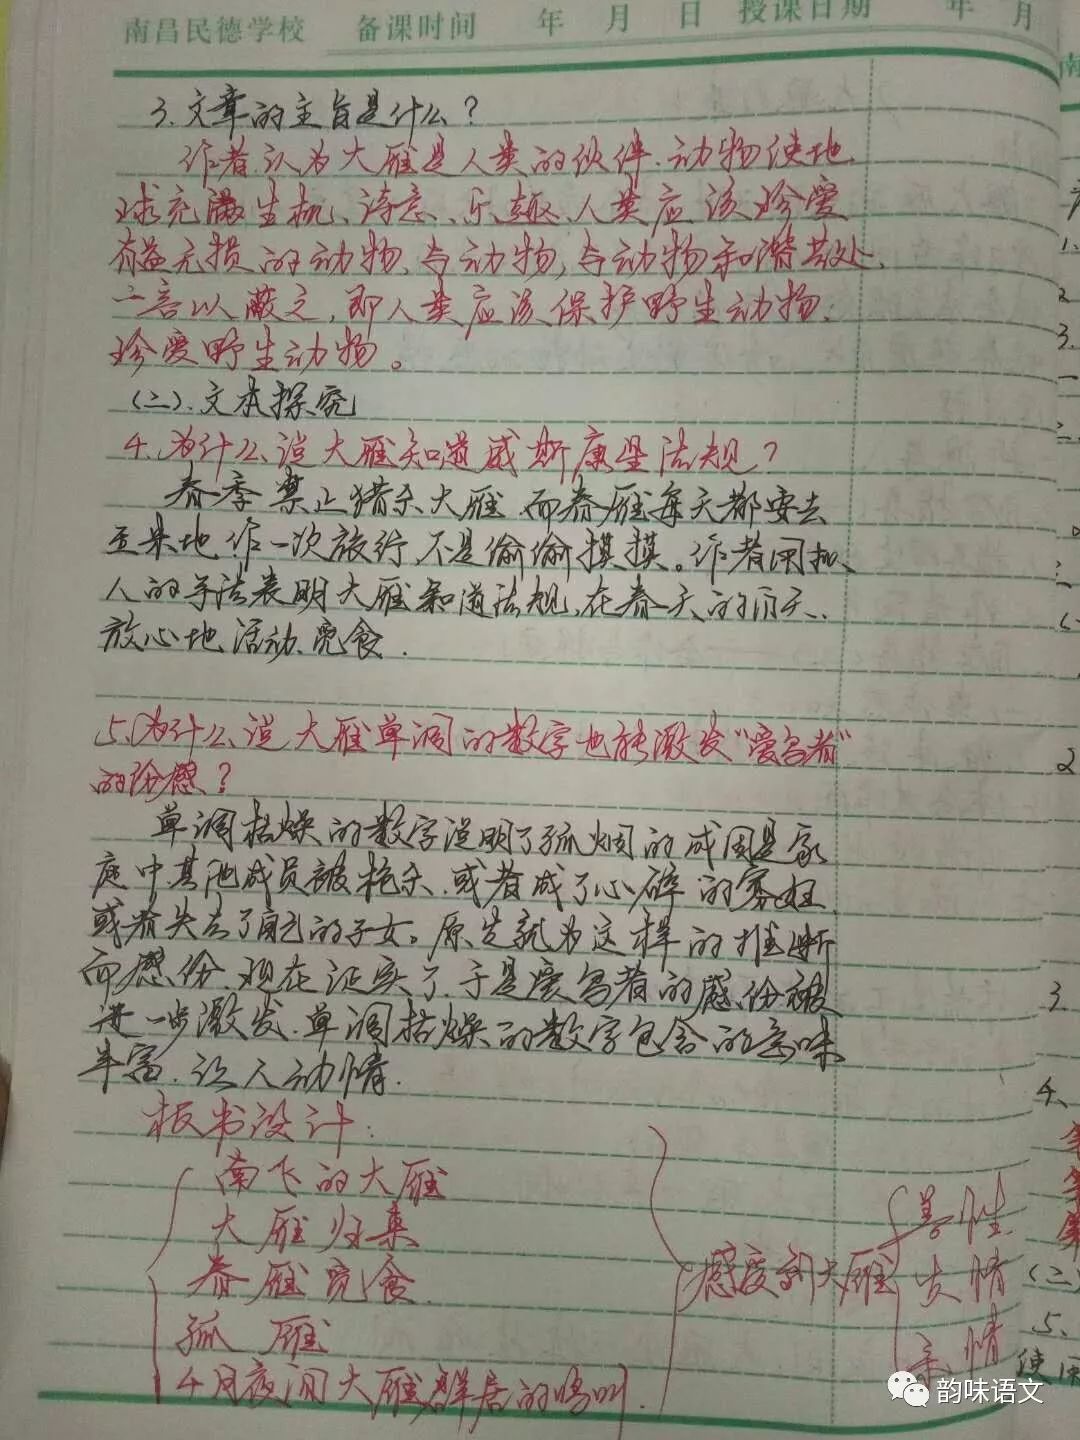 南昌民德学校 备课时间 年 月 日 授课日期 年 月
3.文章的主旨是什么?
作者认为大雁是人类的伙伴.动物使地
球充满生机、诗意、乐趣.人类应该珍爱
有益无损的动物,与动物,与动物和谐共处,
一言以蔽之,即人类应该保护野生动物,
珍爱野生动物。
(二).文本探究
4.为什么说大雁知道威斯康星法规?
春季禁止猎杀大雁.而春雁每天都要去
玉米地作一次旅行,不是偷偷摸摸。作者用拟
人的手法表明大雁知道法规,在春天的
放心地活动、觅食.
5.为什么说大雁单调的数字也能激发"爱鸟者"
的伤感?
单调枯燥的数字说明了孤雁的成因是家
庭中其他成员被枪杀.或者成了心碎的寡妇
或者失去了自己的子女。原先就为这样的推断
而感伤.现在证实了.于是爱鸟者的感伤被
进一步激发.单调枯燥的数字包含的意味
丰富.让人动情.
板书设计:
南飞的大雁
大雁归来
春雁觅食
孤雁
4月夜间大雁群居的鸣叫.
感受到大雁
善性
友情
亲情
韵味语文